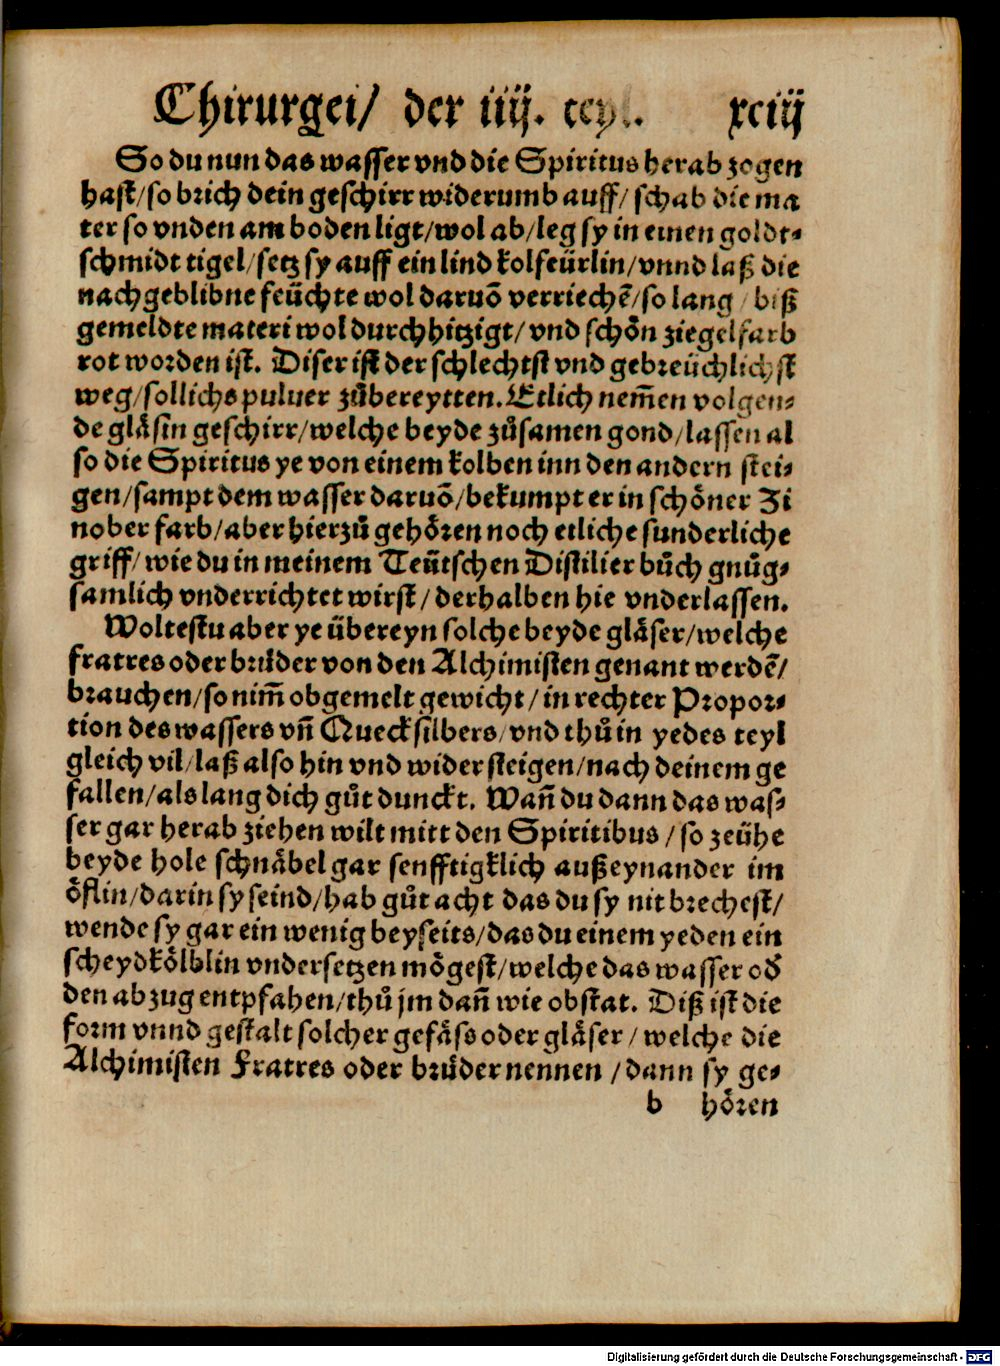 Chirurgei/ der iiij. teyl. xciij
So du nun das wasser vnd die Spiritus herab zogen
hast/so brich dein geschirr widerumb auff/ schab die ma
ter so vnden am boden ligt/wol ab/leg sy in einen goldt-
schmidt tigel/setz sy auff ein lind kolfeürlin/vnnd laß die
nachgeblibne feüchte wol daruō verriechē/so lang / biß
gemeldte materi wol durchhitzigt/ vnd schön ziegelfarb
rot worden ist. Diser ist der schlechtst vnd gebreüchlichst
weg/sollichs puluer zůbereytten. Etlich nem̄en volgen-
de gläsin geschirr/welche beyde zůsamen gond/lassen al
so die Spiritus ye von einem kolben inn den andern stei-
gen/sampt dem wasser daruō/bekumpt er in schöner Zi
nober farb/aber hierzů gehören noch etliche sunderliche
griff/ wie du in meinem Teütschen Distilier bůch gnůg-
samlich vnderrichtet wirst/ derhalben hie vnderlassen.
Woltestu aber ye übereyn solche beyde gläser/welche
fratres oder brüder von den Alchimisten genant werdē/
brauchen/so nim̄ obgemelt gewicht/ in rechter Propor-
tion des wassers vn̄ Quecksilbers/vnd thů in yedes teyl
gleich vil/laß also hin vnd wider steigen/nach deinem ge
fallen/als lang dich gůt dunckt. Wan̄ du dann das was-
ser gar herab ziehen wilt mitt den Spiritibus/ so zeühe
beyde hole schnäbel gar senfftigklich außeynander im
öflin/darin sy seind/hab gůt acht das du sy nit brechest/
wende sy gar ein wenig beyseits/das du einem yeden ein
scheydkölblin vndersetzen mögest/welche das wasser od̄
den abzug entpfahen/thů jm dan̄ wie obstat. Diß ist die
form vnnd gestalt solcher gefäss oder gläser/ welche die
Alchimisten Fratres oder brüder nennen/dann sy ge-
b hören
Digitalisierung gefördert durch die Deutsche Forschungsgemeinschaft - DFG